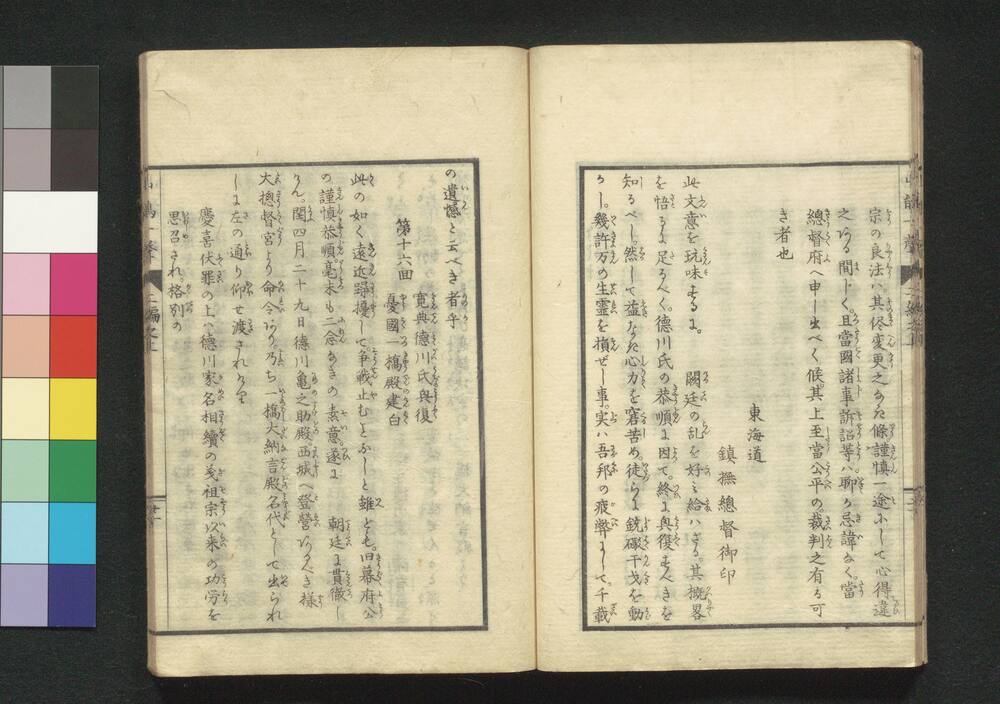 宗の良法ハ其侭変更之なた條謹慎一途にして心得違
之ある間じく。且當國諸事訴訟等ハ聊か忌諱なく。當
總督府へ申し出べく候其上至當公平の。裁判之有る可
き者也
東海道
鎮撫總督御印
此文意を玩味するに。闕廷の乱を好ミ給ハざる。其概畧
を悟るに足るべく。徳川氏の恭順に因て。終に興復すべきを
知るべし。然して益なた心力を窘苦め。徒らに銃礮干戈を動
かし。幾許万の生霊を損ぜし事。実ハ吾邦の疲弊にして。千載
の遺憾と云べき者乎
第十六回
寛典徳川氏興復
憂國一橋殿建白
此の如く遠近蹂擾して。争戦止むときなしと雖ども。旧幕府公
の謹慎恭順。毫末も二念なきの素意。遂に朝廷に貫徹し
けん。閏四月二十九日徳川亀之助殿。西城へ登營あるべき様
大總督宮より命令あり。乃ち一橋大納言殿名代として出られ
しに左の通り仰せ渡されけり
慶喜伏罪の上ハ徳川家名相續の義祖宗以来の功労を
思召され格別の